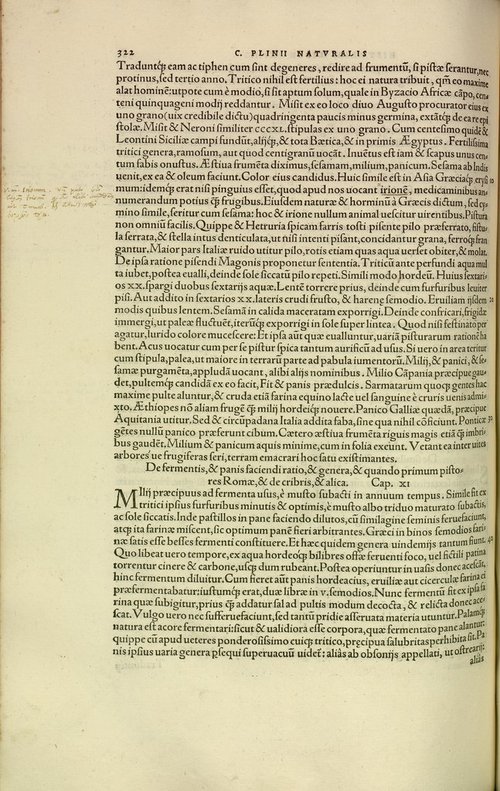 322
C. PLINII NATVRALIS
Traduntq́; eam ac tiphen cum sint degeneres, redire ad frumentũ, si pistæ serantur, nec
protinus, sed tertio anno. Tritico nihil est fertilius: hoc ei natura tribuit, qm̃ eo maxime
alat hominẽ: utpote cum è modio, si sit aptum solum, quale in Byzacio Africæ cãpo, cen⸗
teni quinquageni modij reddantur. Misit ex eo loco diuo Augusto procurator eius ex
uno grano (uix credibile dictu) quadringenta paucis minus germina, extãtq́; de ea re epi
stolæ. Misit & Neroni similiter cccxl. stipulas ex uno grano. Cum centesimo quidẽ &
Leontini Siciliæ campi fundũt, alijq́;, & tota Bætica, & in primis Ægyptus. Fertilissima
tritici genera, ramosum, aut quod centigranũ uocãt. Inuẽtus est iam & scapus unus cen⸗
tum fabis onustus. Æstiua frumẽta diximus, sesamam, milium, panicum. Sesama ab Indis
uenit, ex ea & oleum faciunt. Color eius candidus. Huic simile est in Asia Græciaq́; erysi
mum: idemq́; erat nisi pinguius esset, quod apud nos uocant irionẽ, medicaminibus an⸗
numerandum potius q̃ frugibus. Eiusdem naturæ & horminũ à Græcis dictum, sed cy⸗
mino simile, seritur cum sesama: hoc & irione nullum animal uescitur uirentibus. Pistura
non omniũ facilis. Quippe & Hetruria spicam farris tosti pisente pilo præferrato, fistu⸗
la serrata, & stella intus denticulata, ut nisi intenti pisant, concidantur grana, ferrumq́; fran
gantur. Maior pars Italiæ ruido utitur pilo, rotis etiam quas aqua uerset obiter, & molat.
De ipsa ratione pisendi Magonis proponetur sententia. Triticũ ante perfundi aqua mul
ta iubet, postea eualli, deinde sole siccatũ pilo repeti. Simili modo hordeũ. Huius sextari⸗
os xx. spargi duobus sextarijs aquæ. Lentẽ torrere prius, deinde cum furfuribus leuiter
pisi. Aut addito in sextarios xx. lateris crudi frusto, & harenę semodio. Eruiliam ijsdem
modis quibus lentem. Sesamã in calida maceratam exporrigi. Deinde confricari, frigidæ
immergi, ut paleæ fluctuẽt, iterũq́; exporrigi in sole super lintea. Quod nisi festinato per
agatur, lurido colore mucescere. Et ipsa aũt quæ eualluntur, uariã pisturarum rationẽ ha
bent. Acus uocatur cum per se pistur spica tantum aurificũ ad usus. Si uero in area teritur
cum stipula, palea, ut maiore in terrarũ parte ad pabula iumentorũ. Milij, & panici, & se⸗
samæ purgamẽta, appludã uocant, alibi alijs nominibus. Milio Cãpania præcipue gau⸗
det, pultemq́; candidã ex eo facit, Fit & panis prædulcis. Sarmatarum quoq́; gentes hac
maxime pulte aluntur, & cruda etiã farina equino lacte uel sanguine è cruris uenis admi⸗
xto. Æthiopes nõ aliam frugẽ q̃ milij hordeiq́; nouere. Panico Galliæ quædã, præcipue
Aquitania utitur. Sed & circũpadana Italia addita faba, sine qua nihil cõficiunt. Ponticæ
gẽtes nullũ panico præferunt cibum. Cætero æstiua frumẽta riguis magis etiã q̃ imbri⸗
bus gaudẽt. Milium & panicum aquis minime, cum in folia exeunt. Vetant ea inter uites
arbores ue frugiferas seri, terram emacrari hoc satu existimantes.
De fermentis, & panis faciendi ratio, & genera, & quando primum pisto⸗
res Romæ, & de cribris, & alica. Cap. XI
MIlij præcipuus ad fermenta usus, è musto subacti in annuum tempus. Simile fit ex
tritici ipsius furfuribus minutis & optimis, è musto albo triduo maturato subactis,
ac sole siccatis. Inde pastillos in pane faciendo dilutos, cũ similagine seminis feruefaciunt,
atq́; ita farinæ miscent, sic optimum panẽ fieri arbitrantes. Græci in binos semodios fari⸗
næ satis esse besses fermenti constituere. Et hæc quidem genera uindemijs tantum fiunt.
Quo libeat uero tempore, ex aqua hordeoq́; bilibres offæ feruenti foco, uel fictili patina
torrentur cinere & carbone, usq́; dum rubeant. Postea operiuntur in uasis donec acescãt,
hinc fermentum diluitur. Cum fieret aũt panis hordeacius, eruiliæ aut cicerculæ farina ei
præfermentabatur: iustumq́; erat, duæ libræ in v. semodios. Nunc fermentũ fit ex ipsa fa
rina quæ subigitur, prius q̃ addatur sal ad pultis modum decocta, & relicta donec aces⸗
scat. Vulgo uero nec sufferuefaciunt, sed tantũ pridie asseruata materia utuntur. Palamq́;
natura est acore fermentari: sicut & ualidiora esse corpora, quæ fermentato pane alantur:
quippe cũ apud ueteres ponderosissimo cuiq́; tritico, præcipua salubritas perhibita sit. Pa
nis ipsius uaria genera ꝑsequi superuacuũ uidet̃: aliàs ab obsonijs appellati, ut ostrearij:
aliàs